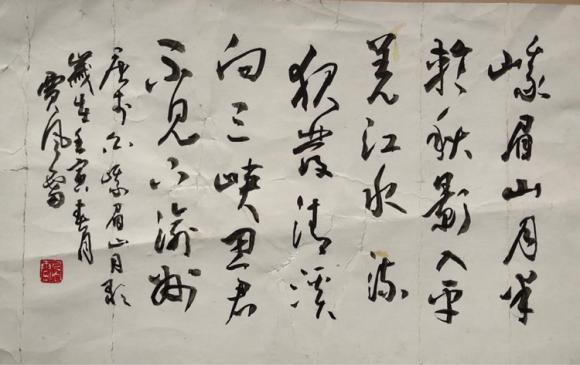 峨眉山月半
輪秋影入平
羌江水流
夜發清溪
向三峽思君
不見下渝州
唐李白峨眉山月歌
歲在壬寅春月
賈风